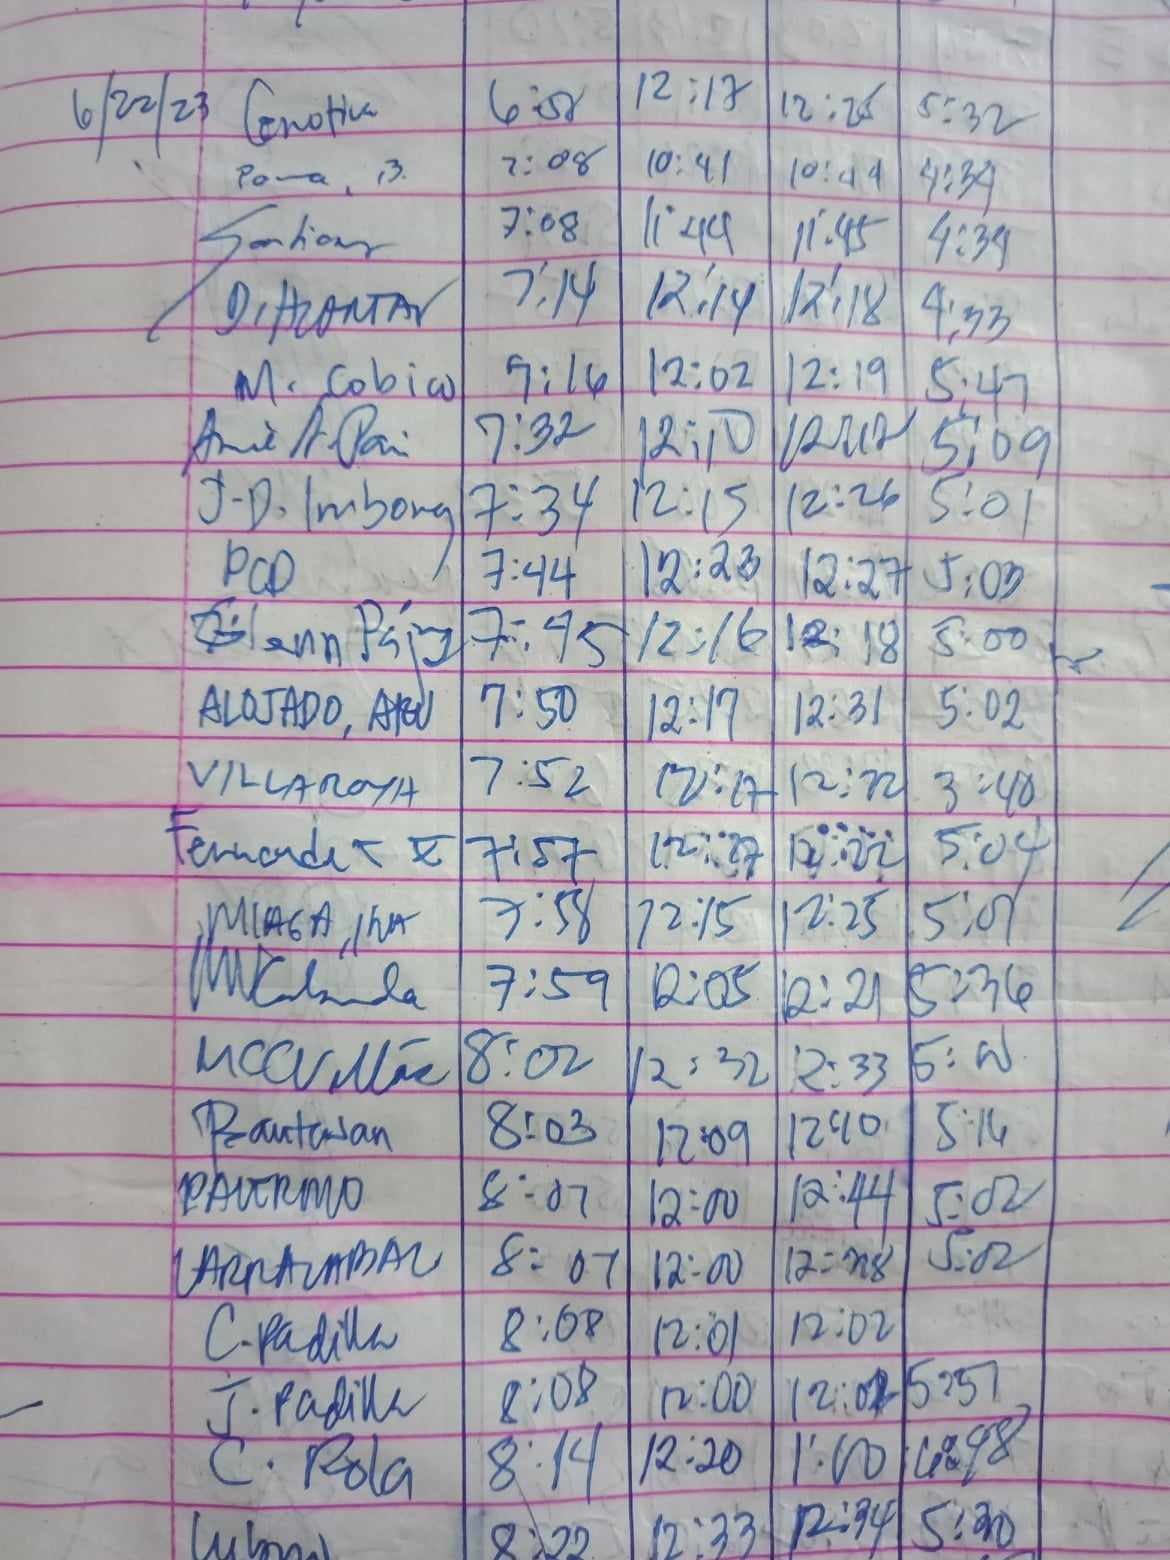 6/22/23 Genotiva 6:58 12:17 12:25 5:32
Poma, B. 7:08 10:41 10:44 4:34
Santiony 7:08 11:44 11:45 4:34
D. ALCANTAR 7:14 12:14 12:18 4:33
M. Cobico 7:16 12:02 12:19 5:47
7:32 12:10 12:12 5:09
J.D. Imbong 7:34 12:15 12:26 5:01
PCD 7:44 12:23 12:27 5:03
Glenn 7:45 12:16 12:18 5:00
ALOJADO, 7:50 12:17 12:31 5:02
VILLAROYA 7:52 12:17 12:22 3:40
Fernandez 7:57 12:27 5:04
MIAGA, INA 7:58 12:15 12:25 5:01
7:59 12:05 12:21 5:36
8:02 12:32 12:33
Bautasan 8:03 12:09 12:10 5:16
PALERMO 8:07 12:00 12:44 5:02
LARRAZABAL 8:07 12:00 5:02
C. Padilla 8:08 12:01 12:02
J. Padilla 8:08 12:00 5:51
C. Rola 8:14 12:20 1:00
8:22 12:33 12:34 5:30